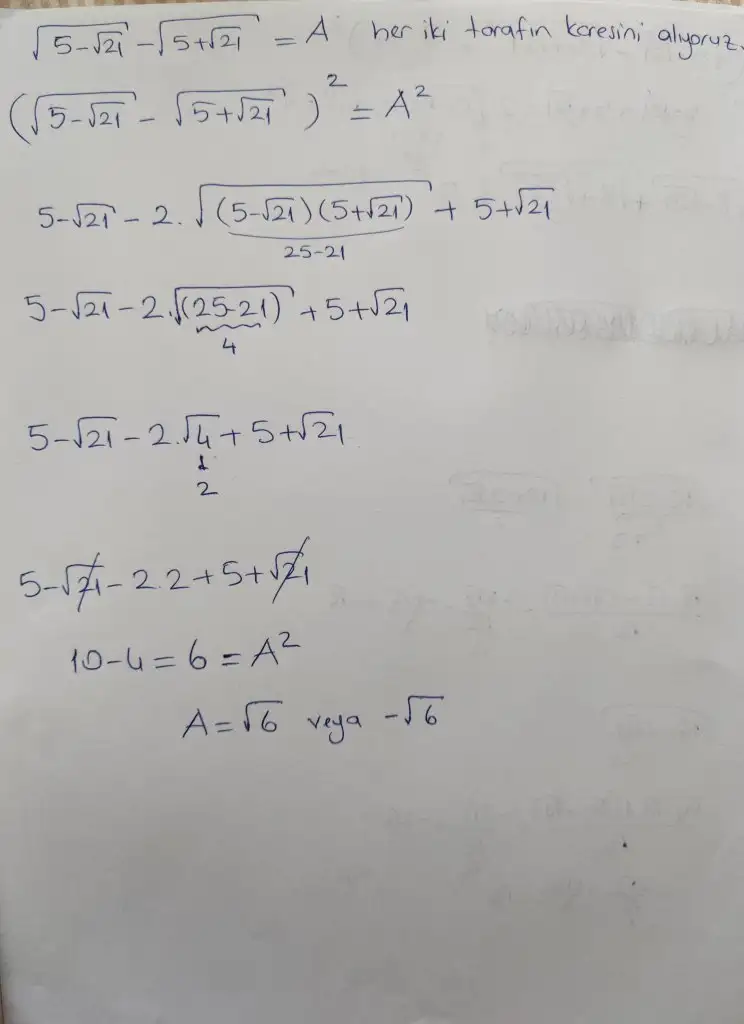 √(5-√21) - √(5+√21) = A her iki tarafın karesini alıyoruz.
(√(5-√21) - √(5+√21))² = A²
5-√21 - 2.√((5-√21)(5+√21)) + 5+√21
25-21
5-√21 - 2.√(25-21) + 5+√21
4
5-√21 - 2.√4 + 5+√21
2
5-√21 - 2.2 + 5+√21
10-4 = 6 = A²
A = √6 veya -√6